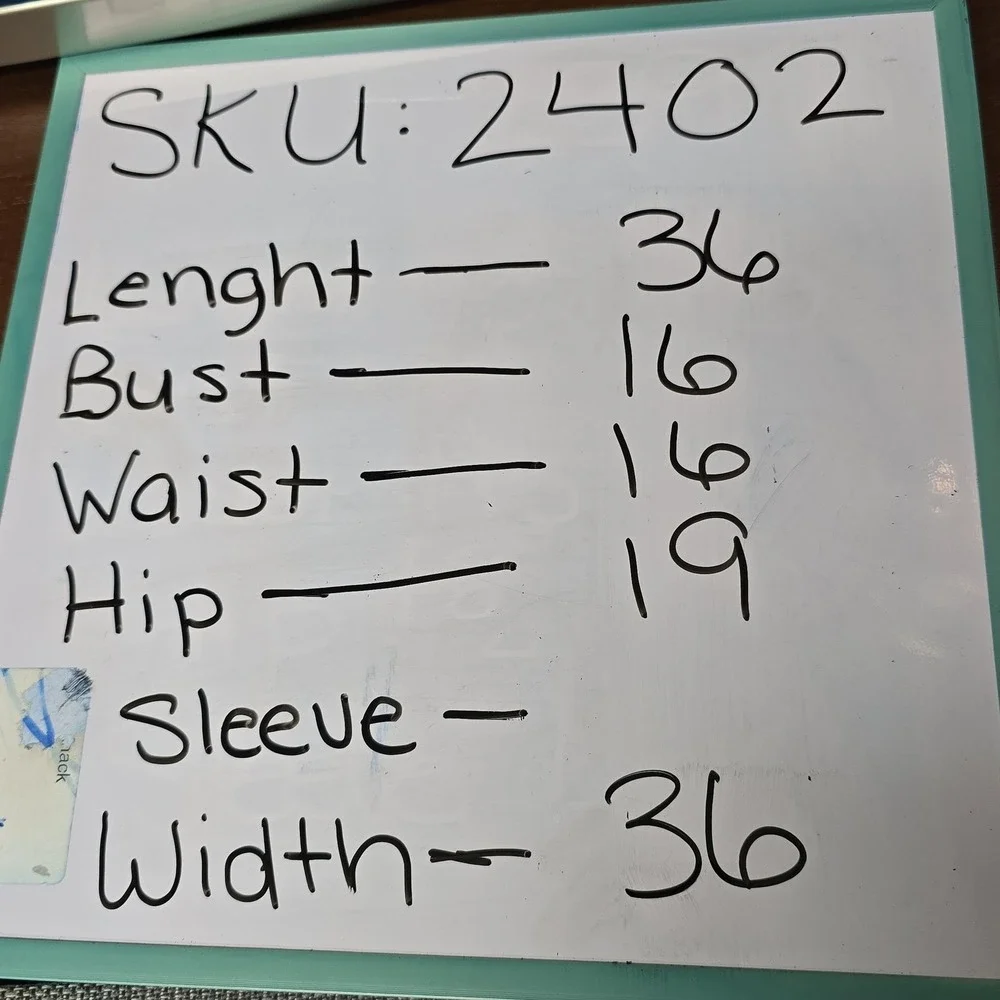 SKU: 2402
Lenght — 36
Bust — 16
Waist — 16
Hip — 19
Sleeve —
Width — 36